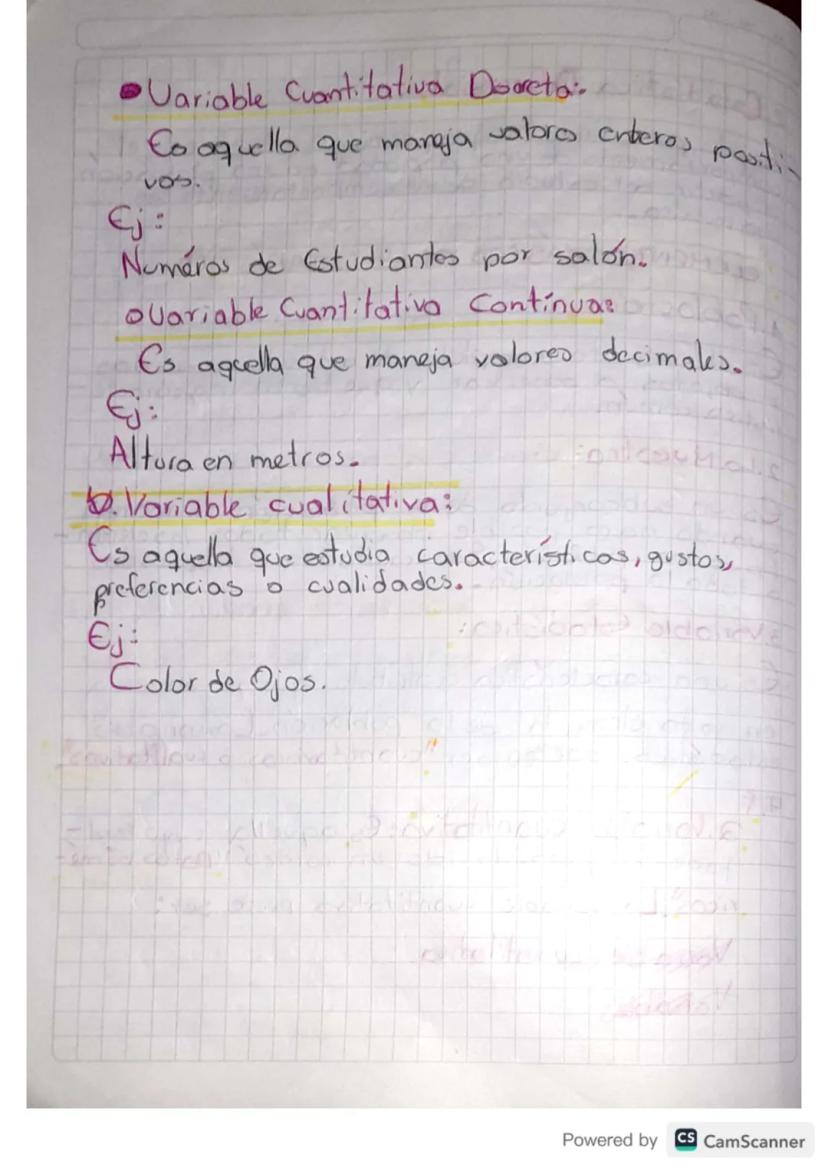 Variable Cuantitativa Discreta:
Es aquella que maneja valores enteros positi-
vos.
Ej:
Numéros de Estudiantes por salón.
Variable Cuantitativa Contínua:
Es aquella que maneja valores decimales.
Ej:
Altura en metros.
b. Variable cualitativa:
Es aquella que estudia características, gustos,
preferencias o cualidades.
Ej:
Color de Ojos.
Powered by CS CamScanner